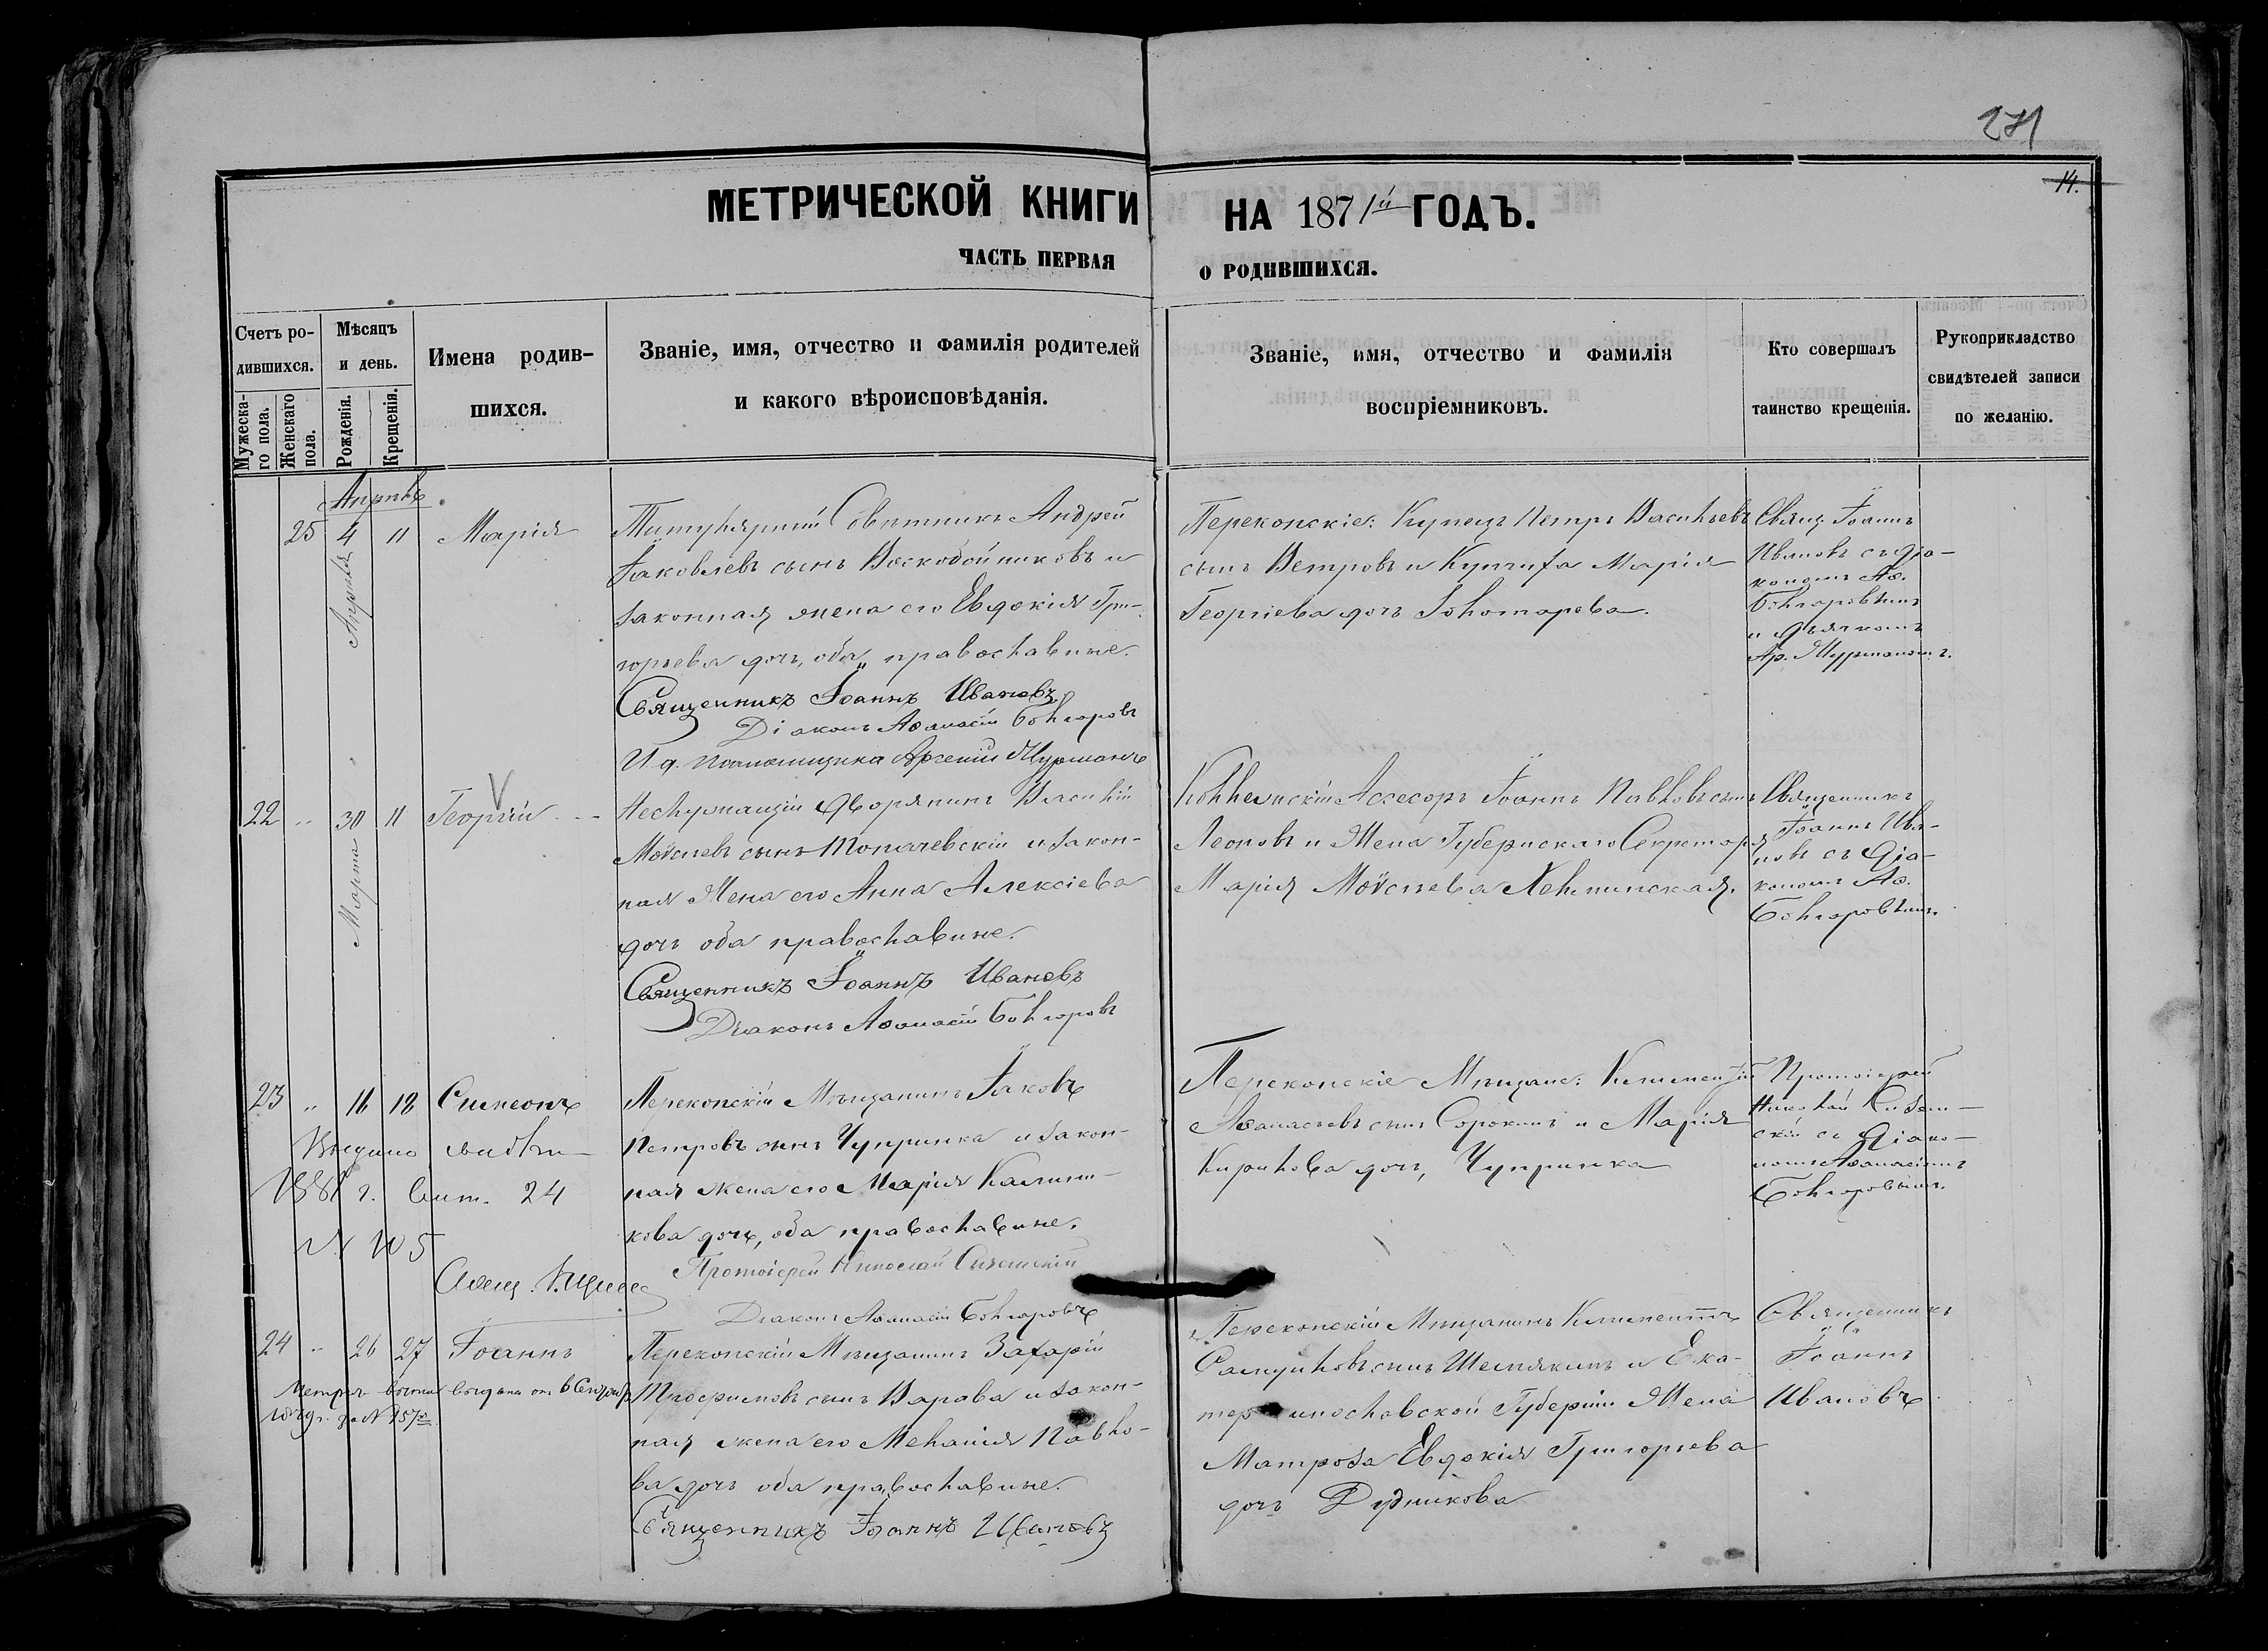 271
14.
МЕТРИЧЕСКОЙ КНИГИ НА 1871й ГОДЪ.
ЧАСТЬ ПЕРВАЯ О РОДИВШИХСЯ.
Счетъ ро-
дившихся.
Мужеска-
го пола.
Женскаго
пола.
Мѣсяцъ
и день.
Рожденія.
Крещенія.
Имена родив-
шихся.
Званіе, имя, отчество и фамилія родителей
и какого вѣроисповѣданія.
Званіе, имя, отчество и фамилія
воспріемниковъ.
Кто совершалъ
таинство крещенія.
Рукоприкладство
свидѣтелей записи
по желанію.
Апрѣль
25 4 11 Марія
Апрѣля
Титулярный Совѣтникъ Андрей
Іаковлевъ сынъ Воскобойниковъ и
законная жена его Евдокія Гри-
горьева дочь, оба православные.
Священникъ Іоаннъ Ивановъ
Діаконъ Аѳанасій Болгаровъ
И. д. Псаломщика Арсеній Мурманъ
Перекопскіе: Купецъ Петръ Васильевъ
сынъ Ветровъ и Купчиха Марія
Георгіева дочь Золотарева.
Свящ. Іоаннъ
Ивановъ съ Діа-
кономъ Аѳ.
Болгаровымъ
и Дьячкомъ
Ар. Мурманомъ.
22 " 30 11 Георгій
Марта
Неслужащій Дворянинъ Василій
Моѵсеевъ сынъ Топачевскій и закон-
ная Жена его Анна Алексіева
дочь оба православные.
Священникъ Іоаннъ Ивановъ
Діаконъ Аѳанасій Болгаровъ
Коллежскій Ассесоръ Іоаннъ Павловъ сынъ
Леоновъ и Жена Губернскаго Секретаря
Марія Моѵсеева
Священникъ
Іоаннъ Ива-
новъ съ Діа-
кономъ Аѳ.
Болгаровымъ.
23 " 16 18 Симеонъ
Выдано
1881 г. 24
N 105
Перекопскій Мѣщанинъ Іаковъ
Петровъ сынъ Чупринка и закон-
ная жена его Марія Калинни-
кова дочь, оба православные.
Протоіерей Николай
Діаконъ Аѳанасій Болгаровъ
Перекопскіе Мѣщане: Климентій
Аѳанасьевъ сынъ Сорокинъ и Марія
Кирилова дочь, Чупринка
Протоіерей
Николай
съ Діако-
номъ Аѳанасіемъ
Болгаровымъ.
24 " 26 27 Іоаннъ
Перекопскій Мѣщанинъ Захарій
Трофимовъ сынъ Варава и закон-
ная жена его Меланія Павло-
ва дочь оба православные.
Священникъ Іоаннъ Ивановъ
Перекопскій Мѣщанинъ Климентъ
Самуиловъ сынъ Шемякинъ и Ека-
теринославской Губерніи Жена
Матроза Евдокія Григорьева
дочь Дудникова
Священникъ
Іоаннъ
Ивановъ